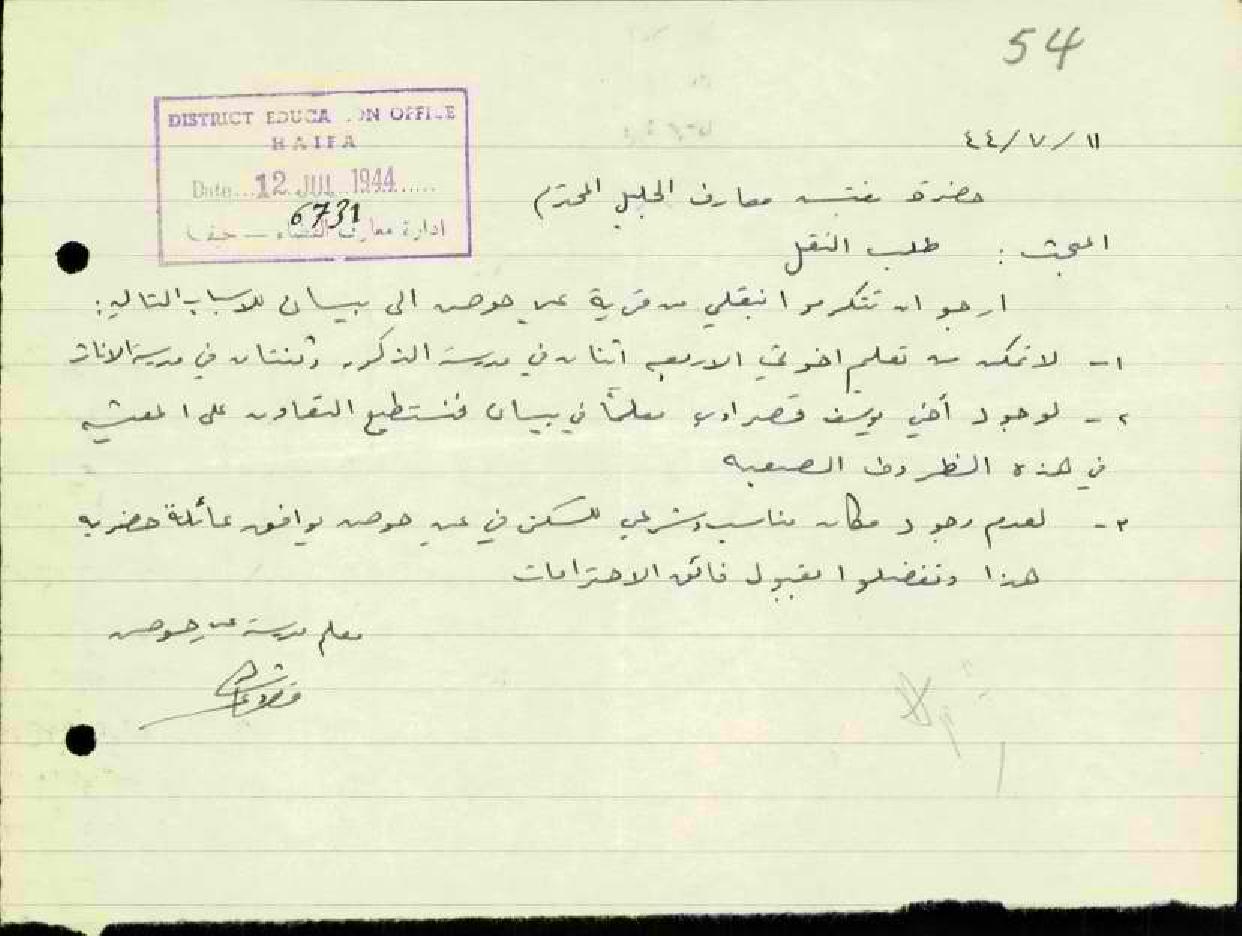 54
DISTRICT EDUCA ON OFFICE
HAIFA
Date... 12 JUL 1944
6731
ادارة معارف القضاء — حيفا
١١/٧/٤٤
حضرة مفتش معارف الجليل المحترم
المبحث : طلب النقل
ارجو ان تتكرموا بنقلي من قرية عين حوض الى بيسان للاسباب التالية:
١- لاتمكن من تعليم اخوتي الاربعه اثنان في مدرسة الذكور واثنتان في مدرسة الاناث
٢- لوجود أخي يوسف معلمًا في بيسان فنستطيع التعاون على المعيشه
في هذه الظروف الصعبه
٣- لعدم وجود مكان مناسب وشرعي للسكن في عين حوض يوافق عائلة حضريه
هذا وتفضلوا بقبول فائق الاحترامات
معلم مدرسة عين حوض